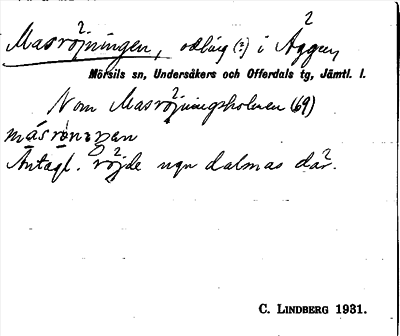 Masröjningen, odling (?) i Äggen,
Mörsils sn, Undersåkers och Offerdals tg, Jämtl. l.
Nom Masröjningsholmen (69)
Antagl. röjde ngn dalmas där.
C. LINDBERG 1931.